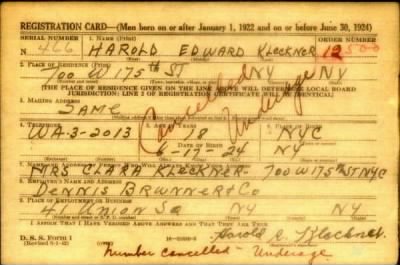 REGISTRATION CARD—(Men born on or after January 1, 1922 and on or before June 30, 1924)
SERIAL NUMBER 1. NAME (Print) ORDER NUMBER
N 466 HAROLD EDWARD KLECKNER 12500
2. PLACE OF RESIDENCE (Print)
700 W 175th ST NY NY
[THE PLACE OF RESIDENCE GIVEN ON THE LINE ABOVE WILL DETERMINE LOCAL BOARD
JURISDICTION; LINE 2 OF REGISTRATION CERTIFICATE WILL BE IDENTICAL]
3. MAILING ADDRESS
SAME
Cancelled Underage
4. TELEPHONE 5. AGE IN YEARS
WA-3-2013 18 NYC
6-17-24 NY
MRS CLARA KLECKNER - 700 W 175th ST NYC
8. EMPLOYER'S NAME AND ADDRESS
DENNIS BRUNNER & CO
41 Union Sq NY NY
I AFFIRM THAT I HAVE VERIFIED ABOVE ANSWERS AND THAT THEY ARE TRUE.
D. S. S. Form 1 Harold E. Kleckner
number cancelled - Underage